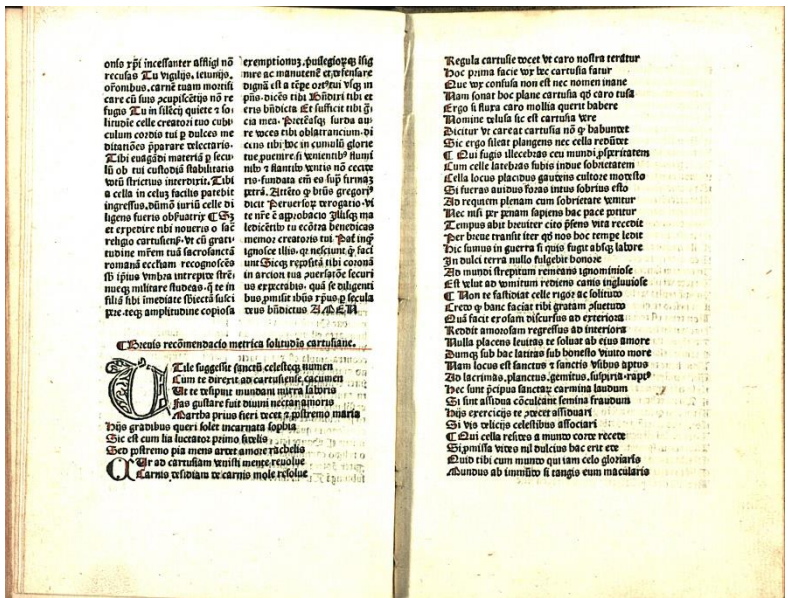 onis xp̄i incessanter affligi nō
recusas Tu vigilijs. ieiunijs.
or̄onibus. carnē tuam mortifi
care cū suis ꝯcupiscētijs nō re
fugis Tu in silēcij quiete ⁊ so
litudīe celle creatori tuo cubi
culum cordis tui ꝑ dulces me
ditatiōes p̄parare delectaris.
Tibi euagādi materiā ꝑ secu
lū ob tui custodiā stabilitatis
votū strictius interdixit. Tibi
a cella in celuȝ facilis patebit
ingressus. dūmō iuriū celle di
ligens fueris obseruatrix ¶ Sȝ
et expedire tibi noueris o sac̄
religio cartusieñ. vt cū grati
tudine mr̄em tuā sacrosanctā
romanā ecc̄iam recognoscēs
sb̄ ip̄ius vmbra intrepide stre
nueqȝ militare studeas. q̄ te in
filiā sibi īmediate sb̄iectā susci
pere. teqȝ amplitudine copiosa
exemptionuȝ. p̄uilegiorꝝqȝ īsig
nire ac manutenē et defensare
dignā est a tēpe ort⁹ tui vsqȝ in
pn̄s. dicēs tibi Bn̄dixi tibi et
eris bn̄dicta Et sufficit tibi ḡ
cia mea. Pretēsaqȝ surda au
re voces tibi oblatrancium. di
cens tibi hoc in cumulū glorie
tue ꝓuenire. si venientib⁹ flumī
nib⁹ ⁊ flantib⁹ ventis nō cecide
ris. fundata em̄ es sup̄ firmaȝ
petrā. Attēto ꝙ btūs gregori⁹
dicit Peruersorꝝ derogatio. vi
te nr̄e ē approbacio Illisqȝ ma
ledicētib⁹ tu ecōtra benedicas
memor creatoris tui Pat̄ inqͥt
ignosce illis. qͣ nesciunt ꝙ faci
unt Sicqȝ reposita tibi coronā
in arcion tua ꝯuersatōe securi
us expectabis. quā se diligenti
bus ꝓmisit ih̄us xp̄us ꝑ secula
deus bn̄dictus AMEN
¶ Breuis recōmendacio metrica solitudis cartusiane.
Utile suggessit sanctū celesteqȝ numen
Cum te direxit ad cartusiense cacumen
Ut te despiȝt mundani mirra laboris
Fas gustare fuit diuini nectar amoris
Martha prius fieri decet ⁊ postremo maria
Hijs gradibus queri solet incarnata sophia
Sic est cum lia luctator primo fidelis
Sed postremo pia mens ardet amore rachelis
Cur ad cartusiam venisti mente reuolue
Carnis desidiam de carnis mole resolue
Regula cartusie docet vt caro nostra teratur
Hoc prima facie vox hec cartusia fatur
Que vox confusa non est nec nomen inane
Nam sonat hoc plane cartusia qͣ̄ caro tusa
Ergo si fluxa caro mollia querit habere
Nomine delusa sic est cartusia vere
Dicitur vt careat cartusia nō qͣ habundet
Sic ergo sileat plangens nec cella redūdet
¶ Qui fugis illecebras ceu mundi ꝓsperitatem
Cum celle latebras subis indue sobrietatem
Cella locus placidus gaudens cultore modesto
Si fueras auidus foras intus sobrius esto
Ad requiem plenam cum sobrietate venitur
Nec nisi per penam sapiens hac pace potitur
Tempus abit breuiter cito p̄sens vita recedit
Per breue transit iter qͣ̄ nos hoc tempe ledit
Hic sumus in guerra si quis fugit absqȝ labore
In dulci terra nullo fulgebit honore
Ad mundi strepitum remeans ignominiose
Est velut ad vomitum rediens canis ingluuiose
¶ Non te fastidiat celle rigor ac solitudo
Credo ꝙ hanc faciat tibi gratam ꝯsuetudo
Quā facit exosam discursus ad exteriora
Reddit amorosam regressus ad interiora
Nulla placens leuitas te soluat ab eius amore
Dumqȝ sub hac latitas sub honesto viuito more
Nam locus est sanctus ⁊ sanctis vsibus aptus
Ad lacrimas. planctus. gemitus. suspiria. rapt⁹
Hec sunt p̄cipua sanctaȝ carmina laudum
Si sint assidua cōculcant semina fraudum
Hijs exercicijs te decet assiduari
Si vis delicijs celestibus associari
¶ Qui cella resides a mundo corde recede
Si ꝓmissa vides nil dulcius hac erit ede
Quid tibi cum mundo qui iam celo gloriaris
Mundus ab immūdo si tangis eum macularis